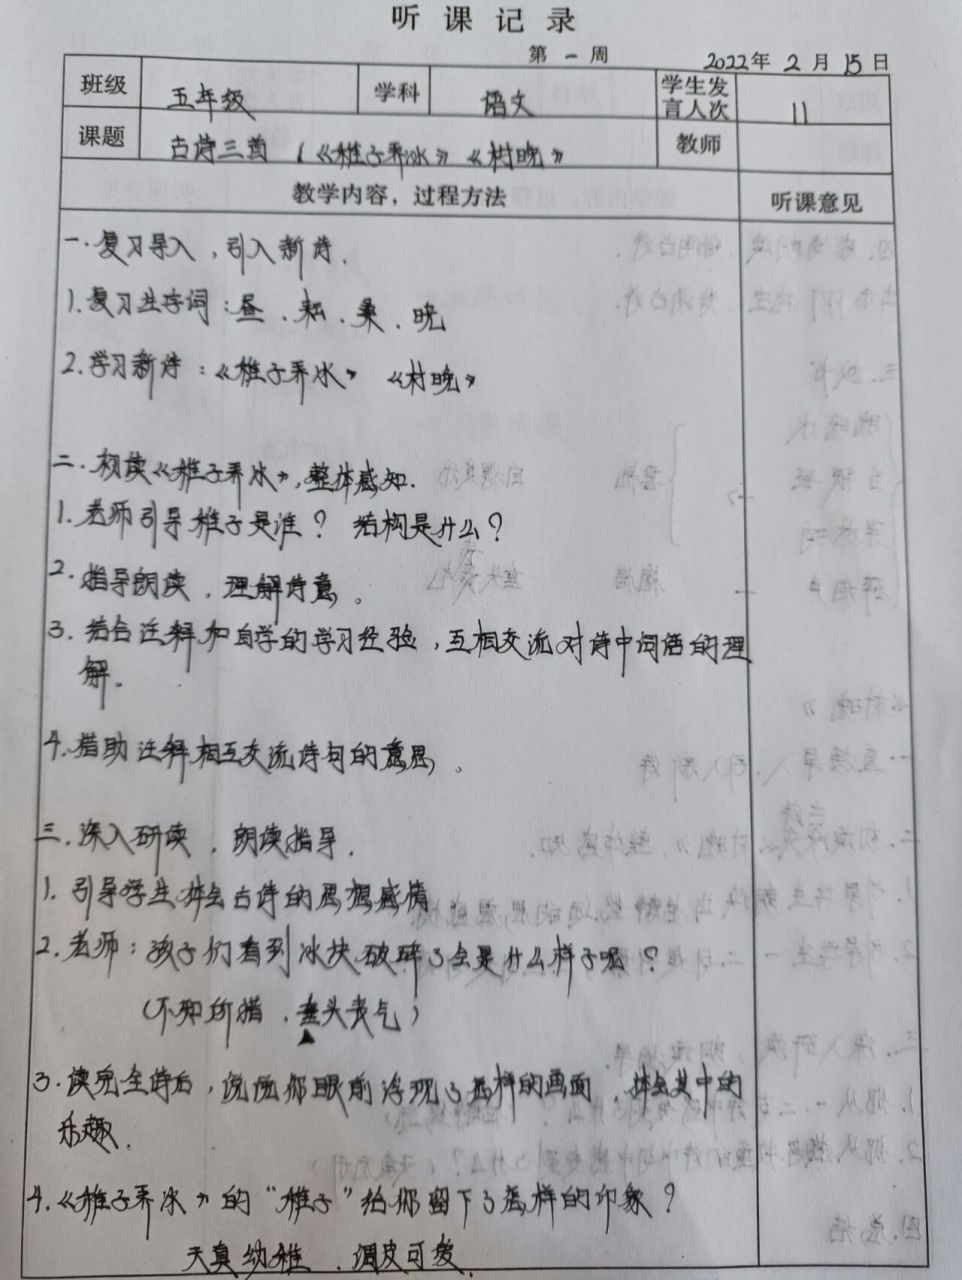 听课记录
第一周 2022年2月15日
班级 五年级 学科 语文 学生发言人次 11
课题 古诗三首（《稚子弄冰》《村晚》 教师
教学内容，过程方法 听课意见
一.复习导入，引入新诗.
1.复习生字词：昼、耘、桑、晓
2.学习新诗：《稚子弄冰》 《村晚》
二.初读《稚子弄冰》，整体感知.
1.老师引导稚子是谁？结构是什么？
2.指导朗读，理解诗意。
3.结合注释和自学的学习经验，互相交流对诗中词语的理
解。
4.借助注释相互交流诗句的意思。
三.深入研读，朗读指导.
1.引导学生体会古诗的思想感情
2.老师：孩子们看到冰块破碎了会是什么样子呢？
（不知所措、垂头丧气）
3.读完全诗后，说说你眼前浮现了怎样的画面，体会其中的
乐趣.
4.《稚子弄冰》的“稚子”给你留下了怎样的印象？
天真幼稚、调皮可爱.